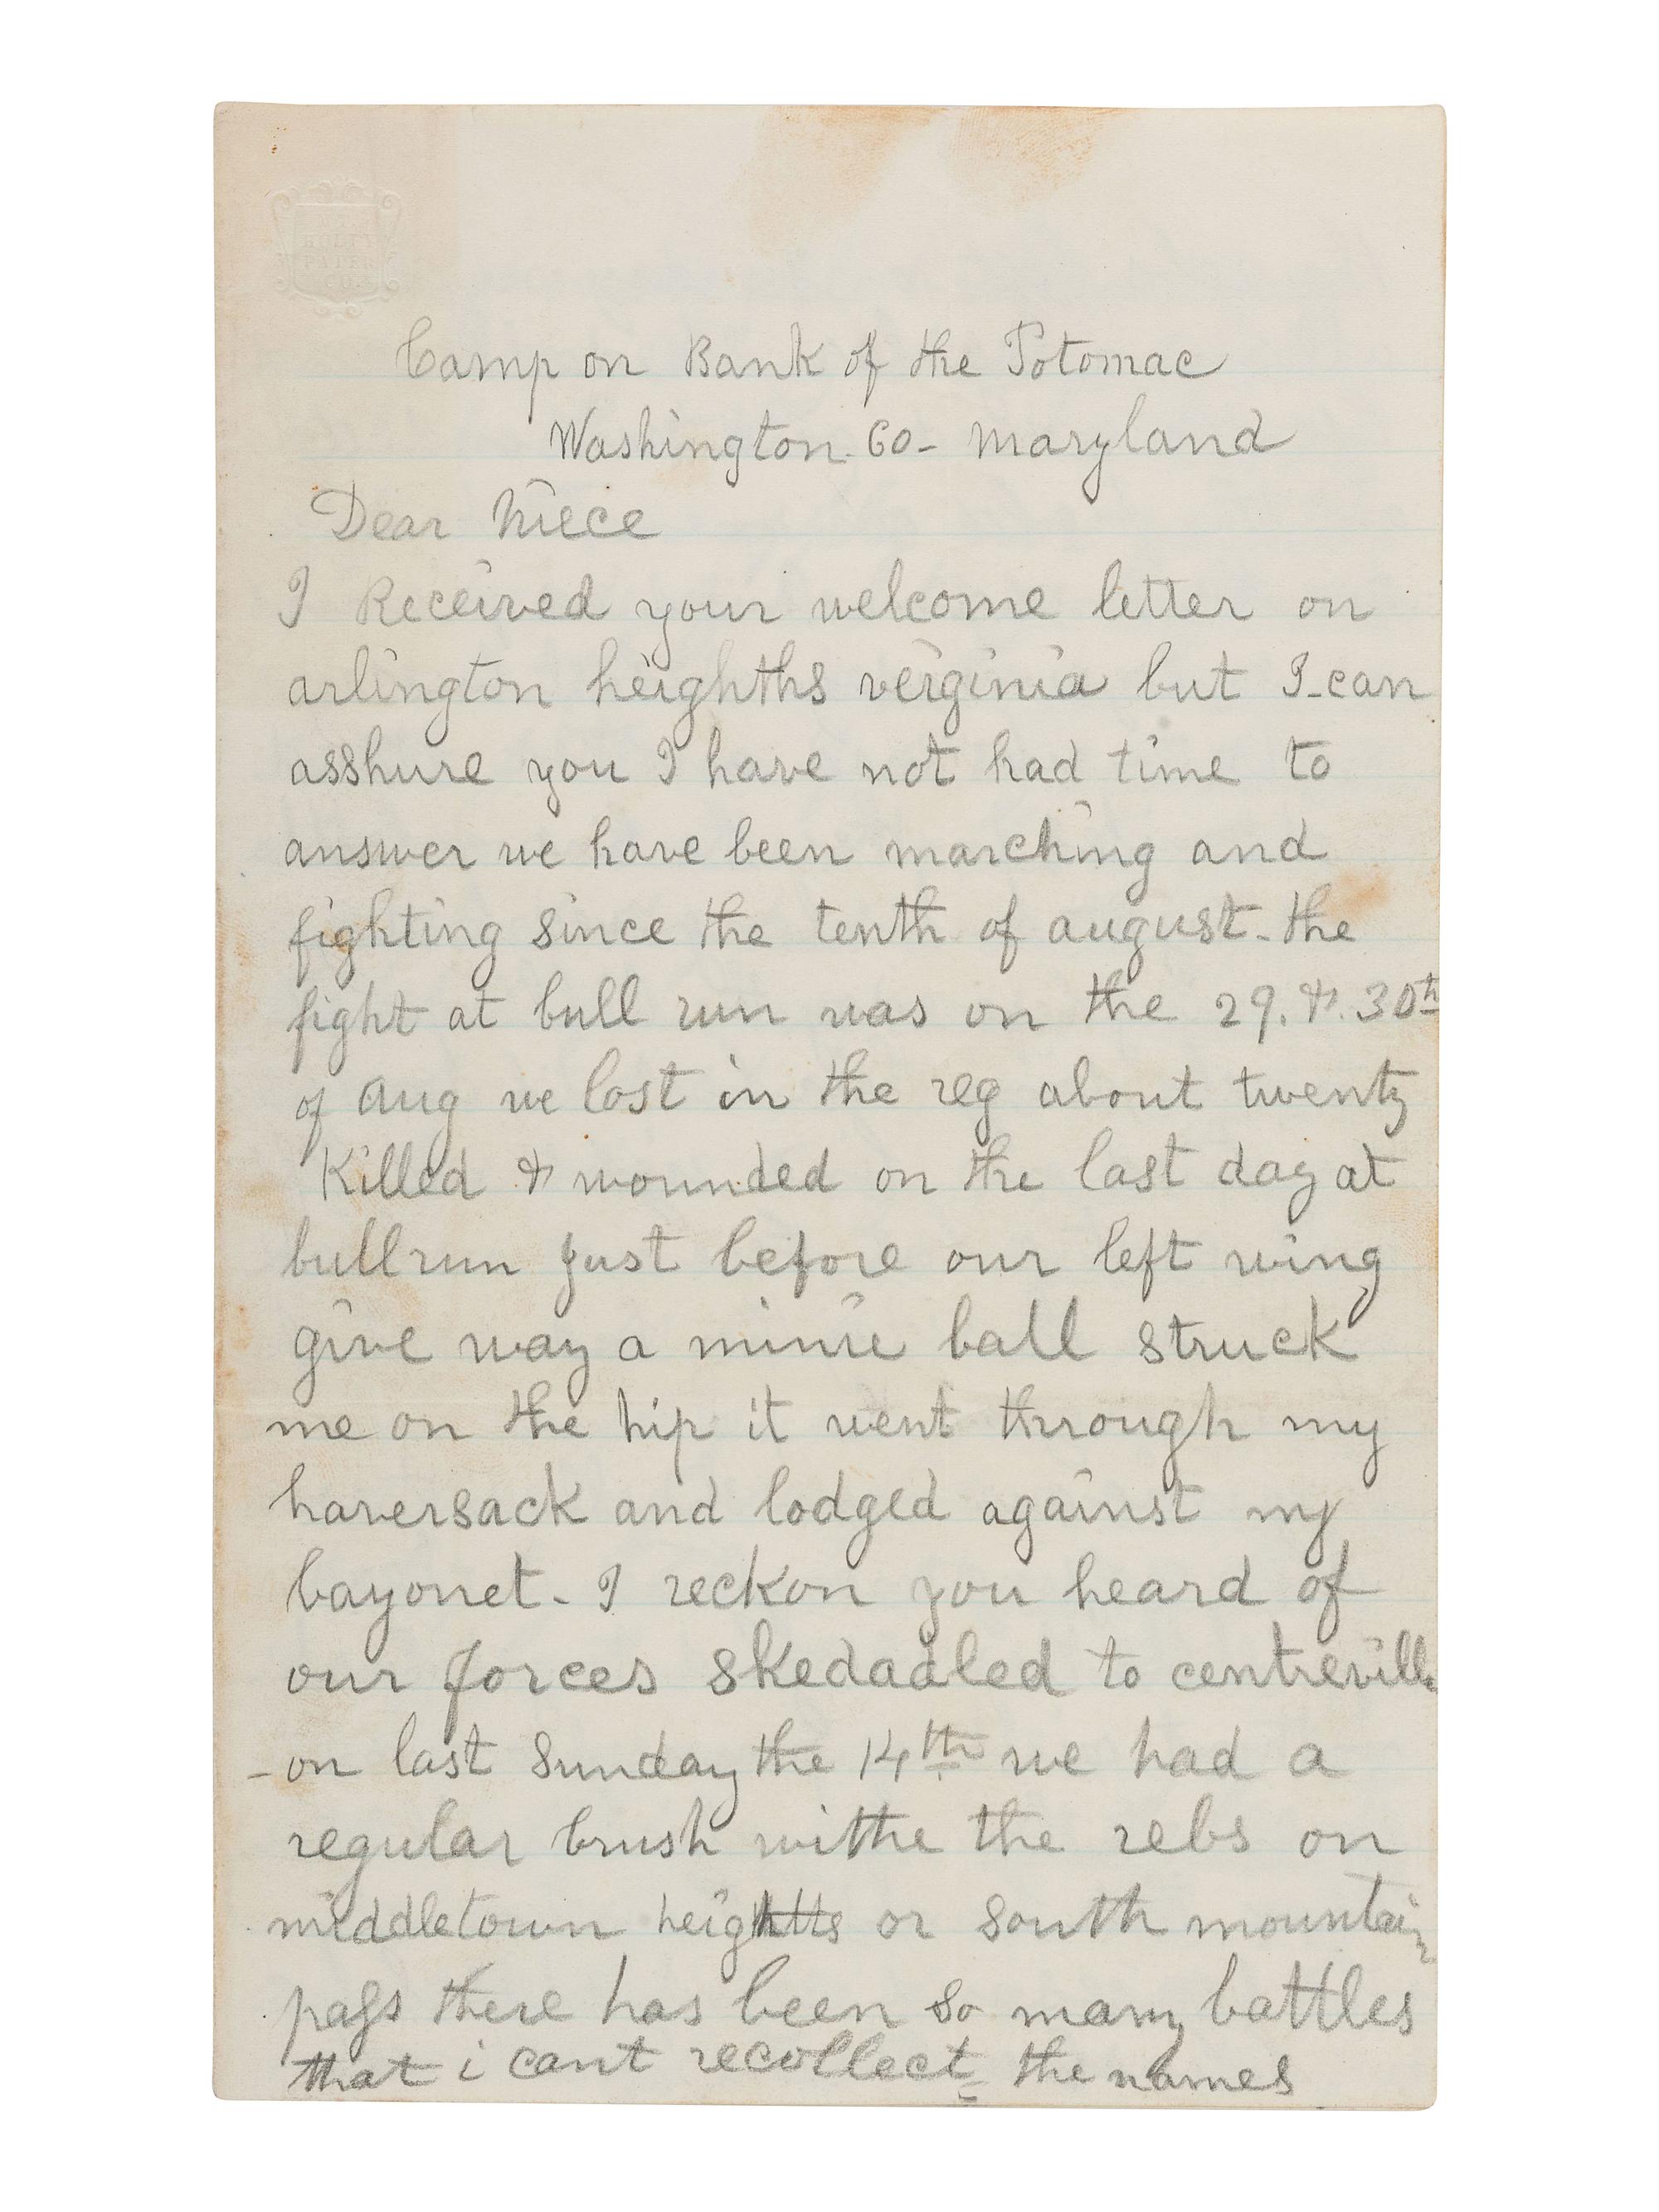 PAPER
Camp on Bank of the Potomac
Washington. Co- Maryland
Dear Niece
I Received your welcome letter on
arlington heighths verginia but I-can
asshure you I have not had time to
answer we have been marching and
fighting since the tenth of august- the
fight at bull run was on the 29. &. 30th
of Aug we lost in the reg about twenty
Killed & wounded on the last day at
bull run just before our left wing
give way a minie ball struck
me on the hip it went through my
haversack and lodged against my
bayonet- I reckon you heard of
our forces skedadled to centreville
- on last Sunday the 14th we had a
regular brush withe the rebs on
middletown heights or South mountain
pass there has been so many battles
that i cant recollect the names